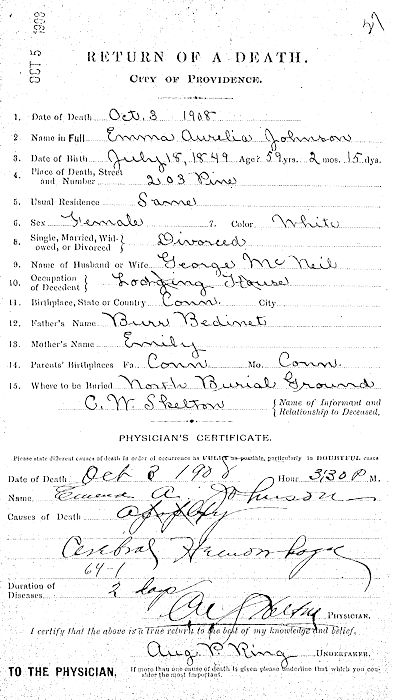 OCT 5 1908
RETURN OF A DEATH.
CITY OF PROVIDENCE.
1. Date of Death Oct. 3 1908
2 Name in Full Emma Aurelia Johnson
3. Date of Birth July 18, 1849 Age? 59 yrs. 2 mos. 15 dys.
4. Place of Death, Street and Number 203 Pine
5. Usual Residence Same
6. Sex Female 7. Color White
8. Single, Married, Widowed, or Divorced Divorced
9. Name of Husband or Wife George McNeil
10. Occupation of Decedent Lodging House
11. Birthplace, State or Country Conn. City
12. Father's Name Burr Bedinet
13. Mother's Name Emily
14. Parents' Birthplaces Fa. Conn Mo. Conn.
15. Where to be Buried North Burial Ground
C. W. Skelton {Name of Informant and Relationship to Deceased,
PHYSICIAN'S CERTIFICATE.
Please state different causes of death in order of occurrence as FULLY as possible, particularly in DOUBTFUL cases
Date of Death Oct 3 1908 Hour 3/30 P. M.
Name Emma A. Johnson
Causes of Death apoplexy
Cerebral Hemorrhage
64-1
Duration of Diseases 2 days
PHYSICIAN.
I certify that the above is a True return to the best of my knowledge and belief,
Aug. P. King UNDERTAKER.
TO THE PHYSICIAN. If more than one cause of death is given please underline that which you consider the most important.